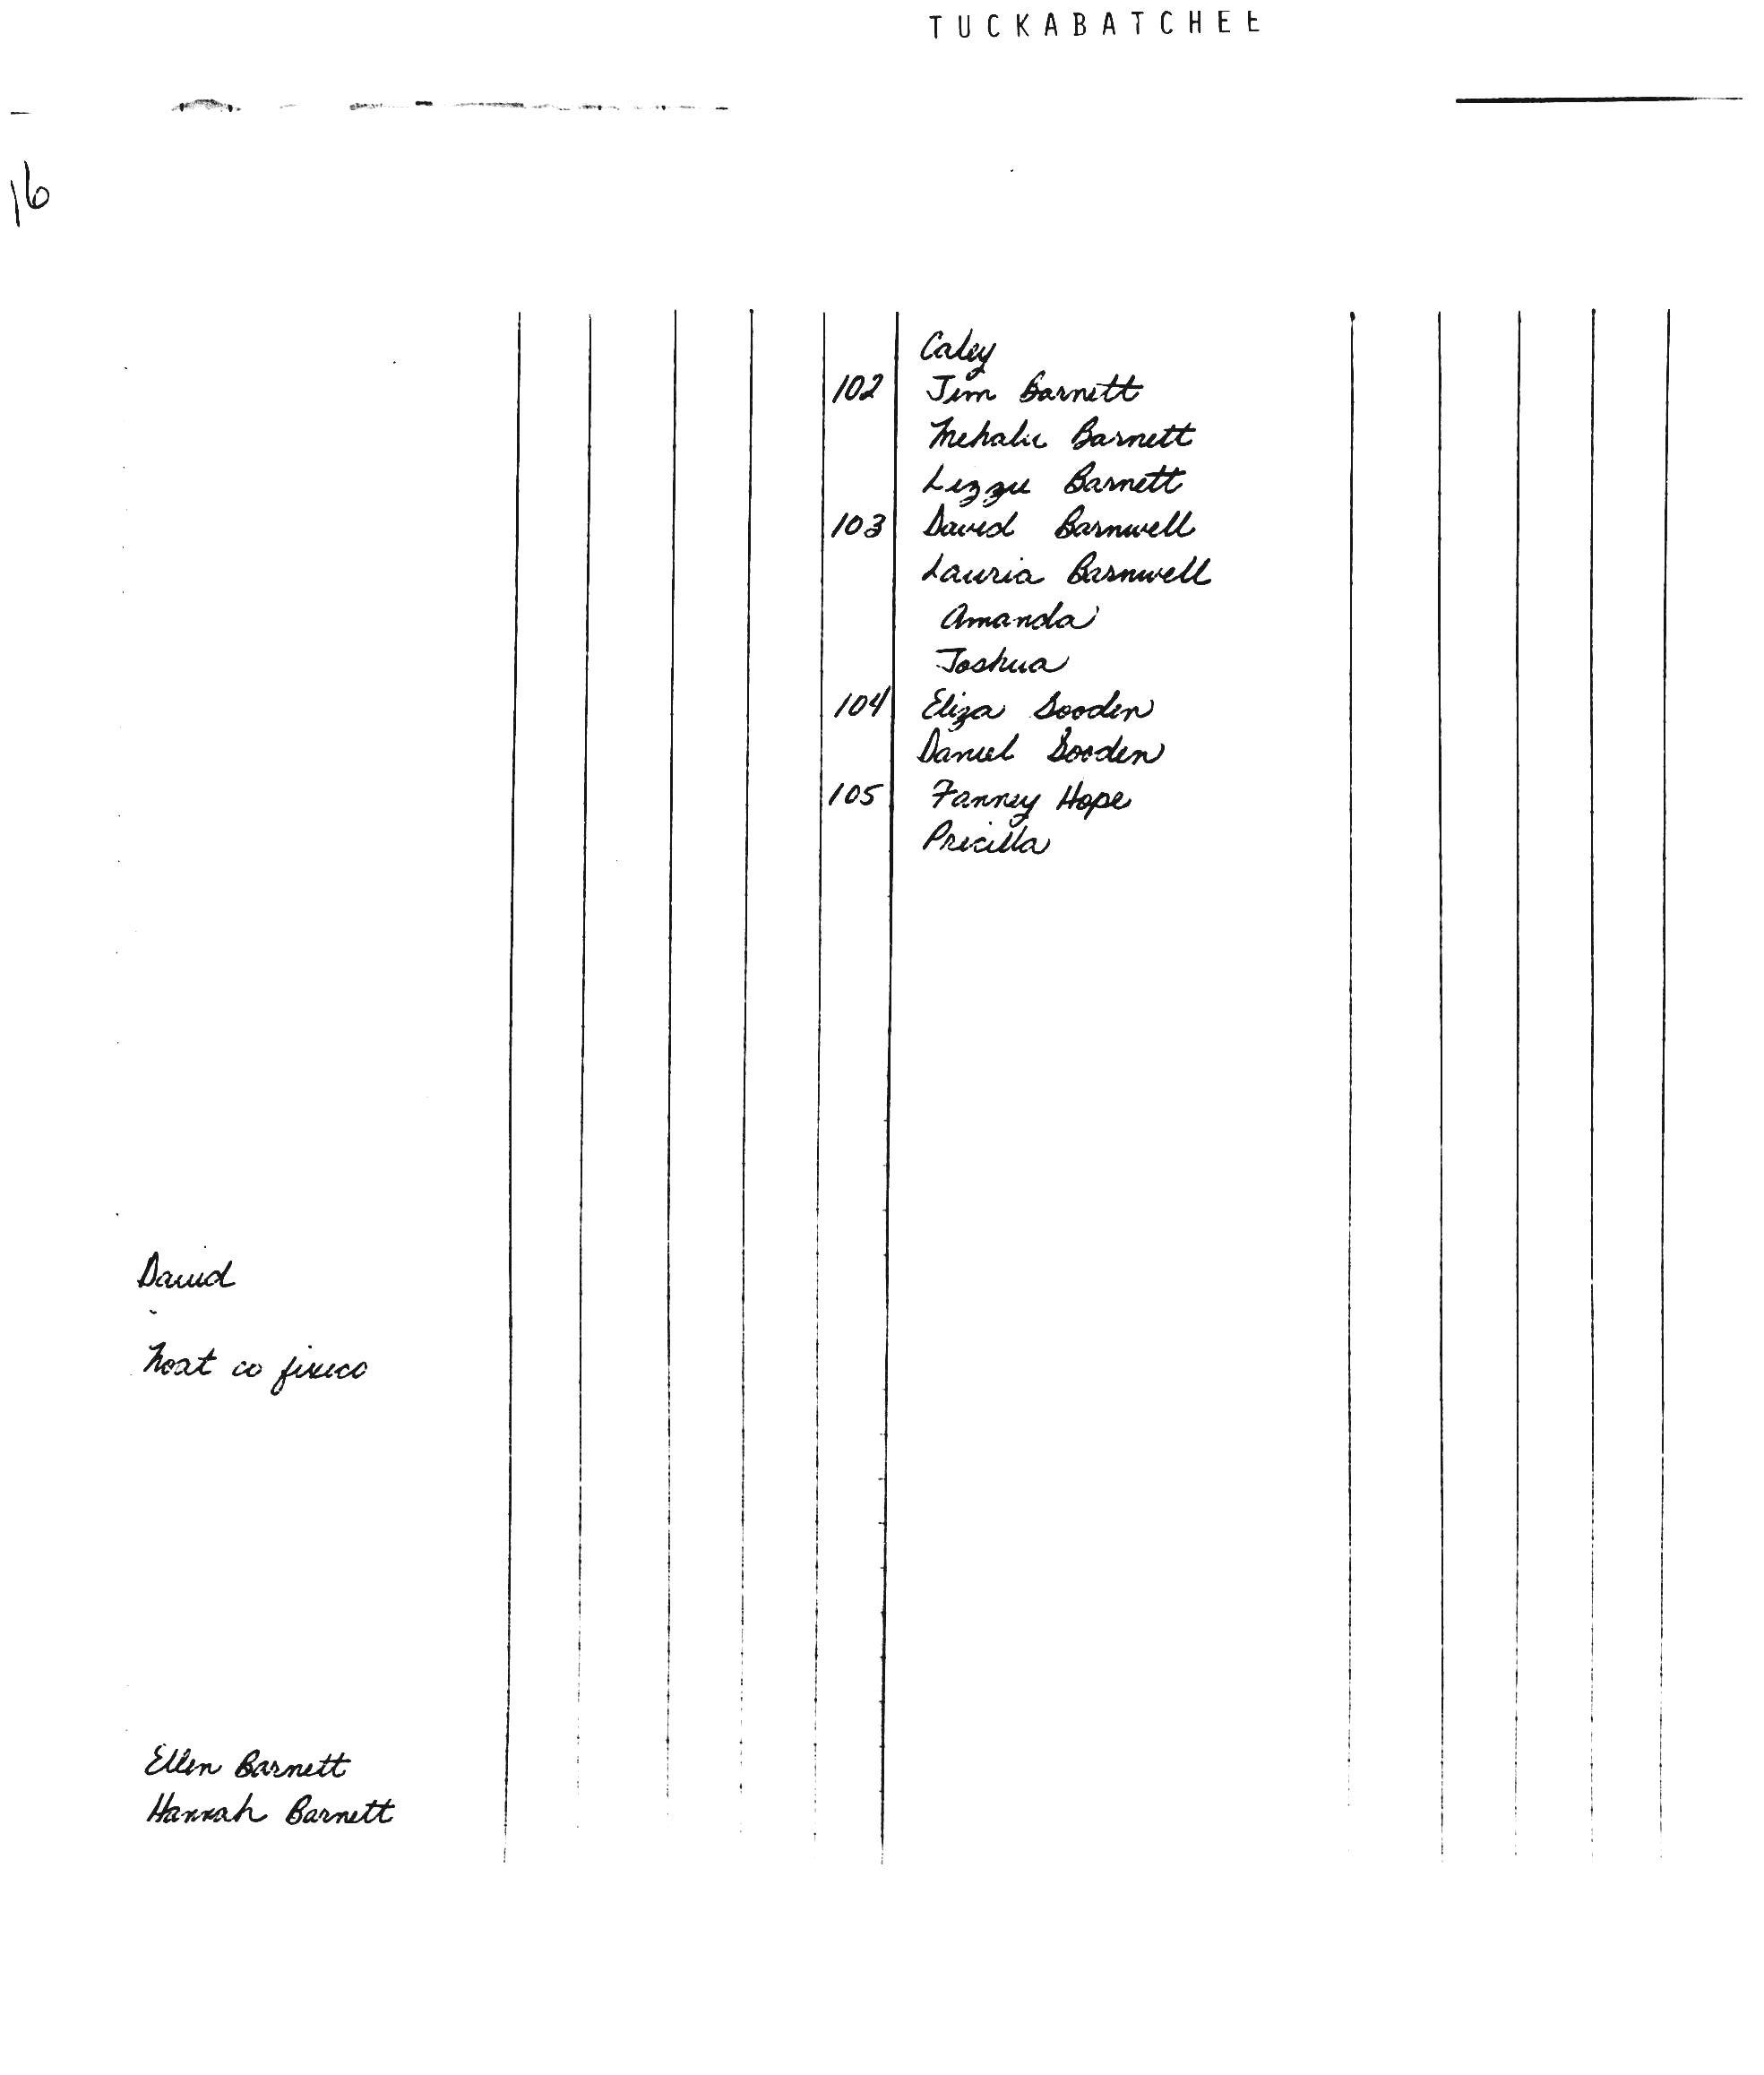 TUCKABATCHEE
16
Caley
102 Jim Barnett
Mehalie Barnett
Lizzie Barnett
103 David Barnwell
Lauria Barnwell
Amanda
Joshua
104 Eliza Sooden
Daniel Sooden
105 Fanney Hope
Pricilla
David
co
Ellen Barnett
Hannah Barnett